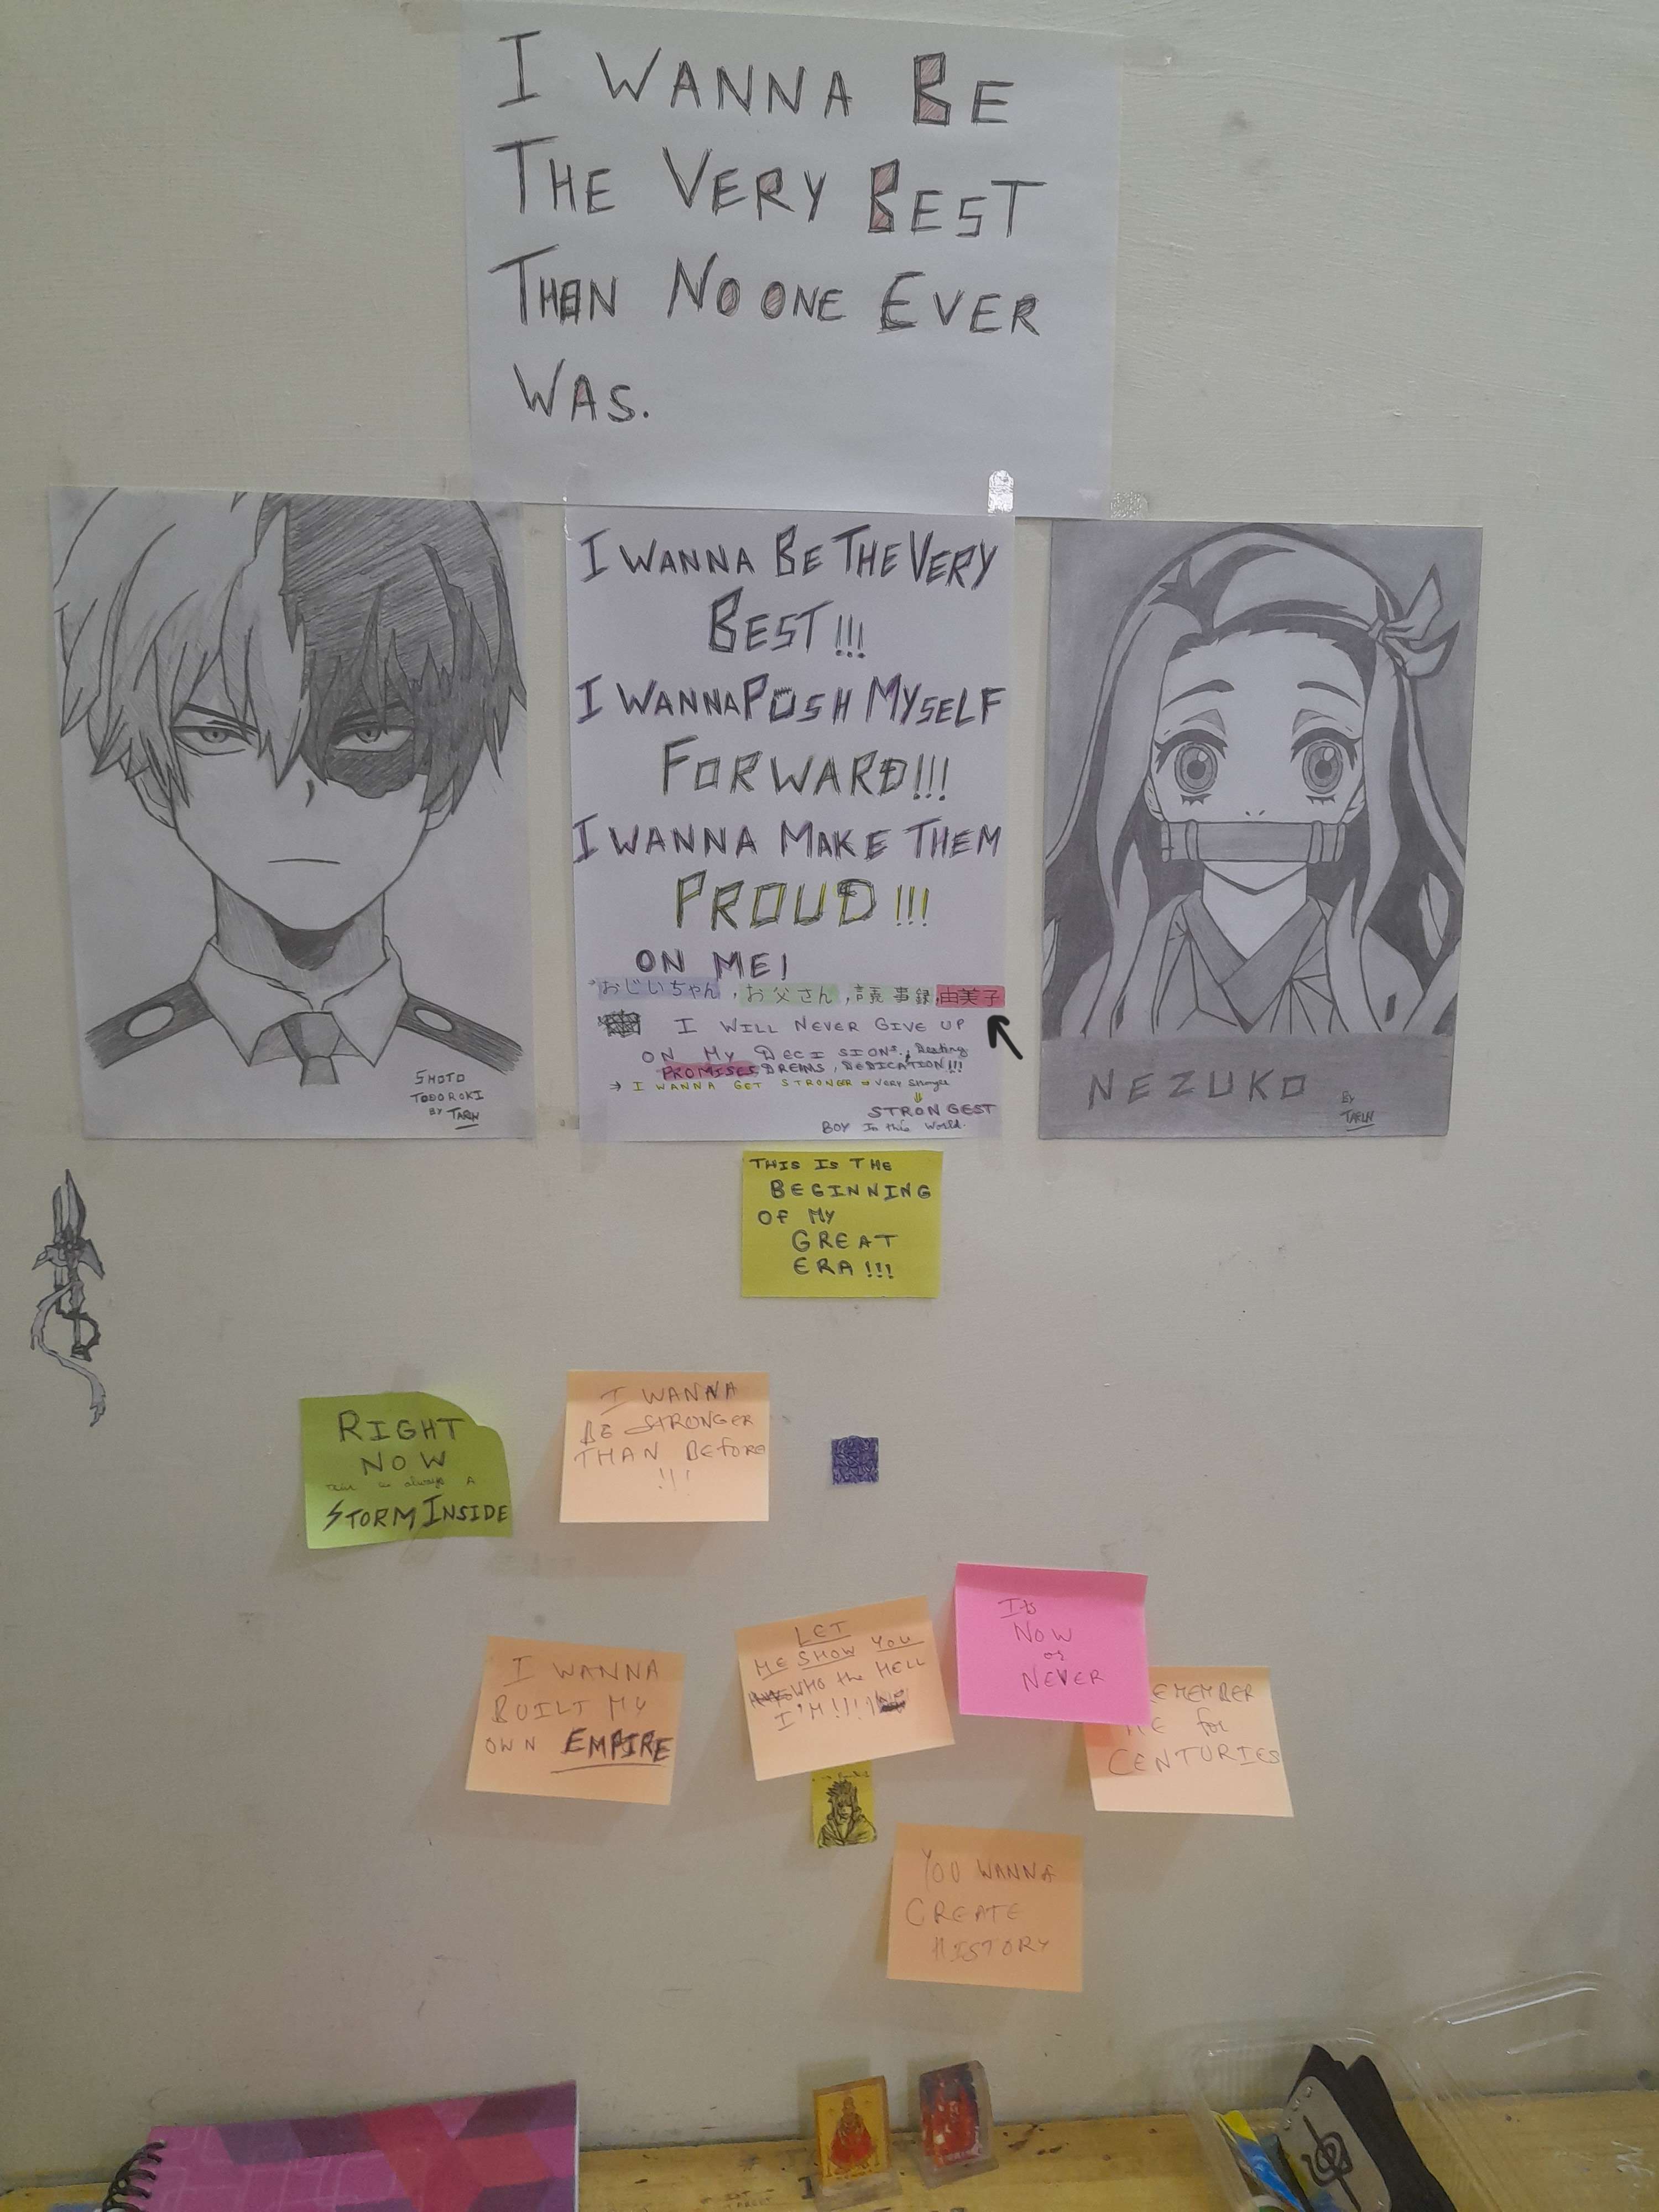 I WANNA BE
THE VERY BEST
THEN NO ONE EVER
WAS.
I WANNA BE THE VERY
BEST!!!
I WANNA PUSH MYSELF
FORWARD!!!
I WANNA MAKE THEM
PROUD!!!
ON ME!
おじいちゃん, お父さん, 読事録, 由美子
I WILL NEVER GIVE UP
ON MY DECISIONS, Destiny
PROMISES DREAMS, DEDICATION!!!
→ I WANNA GET STRONGER → Very Stronger
⇓
STRONGEST
BOY In this World.
SHOTO
TODOROKI
BY TARUN
NEZUKO
BY
TARUN
THIS IS THE
BEGINNING
OF MY
GREAT
ERA!!!
RIGHT
NOW
is always A
STORM INSIDE
I WANNA
BE STRONGER
THAN BEFORE
!!!
I WANNA
BUILT MY
OWN EMPIRE
LET
ME SHOW YOU
WHO the HELL
I'M!!!!
Its
NOW
or
NEVER
EMEMBER
ME for
CENTURIES
YOU WANNA
CREATE
HISTORY